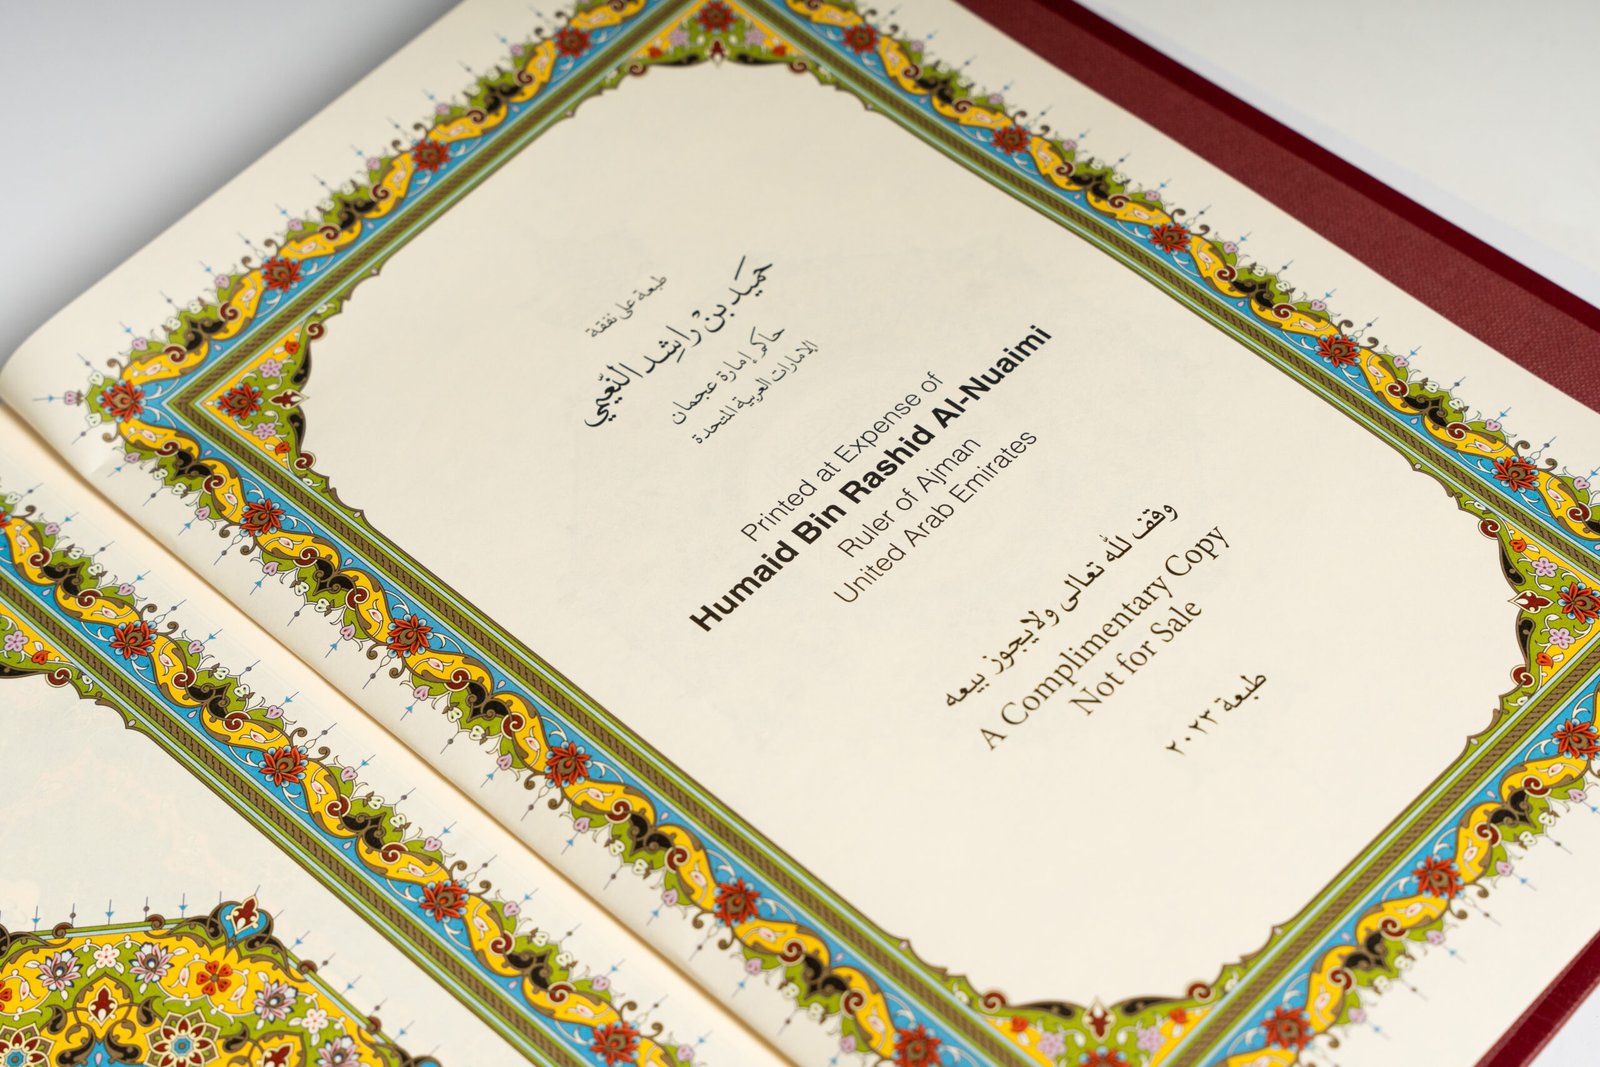 طبعة على نفقة
حميد بن راشد النعيمي
حاكم إمارة عجمان
الامارات العربية المتحدة
Printed at Expense of
Humaid Bin Rashid Al-Nuaimi
Ruler of Ajman
United Arab Emirates
وقف لله تعالى ولايجوز بيعه
A Complimentary Copy
Not for Sale
طبعة ٢٠٢٣